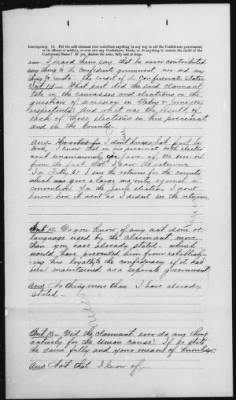 Interrogatory 12. Did the said claimant ever contribute anything in any way to aid the Confederate government,
or its officers or soldiers, or ever own any Confederate bonds, or do anything to sustain the credit of the
Confederate States? If yea, declare the same, fully and at large.
Ans I heard him say that he never contributed
any thing to the Confederate government nor did any
thing to sustain the credit of the Confederate States
Int 13 What part did the said claimant
take in the canvasses and elections on the
question of secession in February & June 1861
respectively. And what was the result of
each of those elections in this precinct
and in the County
in favor of
from the fact that I saw the returns
In Feby 61 I saw the returns for the county
which was give a large majority against
convention. In the June election I dont
know how it went as I didnt see the returns
Int 14 Do you know of any act done or
language used by the claimant more
than you have already stated which
would have prevented him from establish-
ing his loyalty to the confederacy if it had
been maintained as a separate government.
Ans Nothing more than I have already
stated
Int 15 Did the claimant ever do any thing
actively for the Union cause? If so state
the same fully and your means of knowledge
Ans Not that I know of